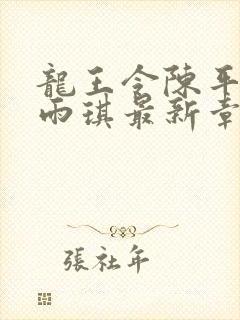 龍王令陳平
雨琪最新章
張社年